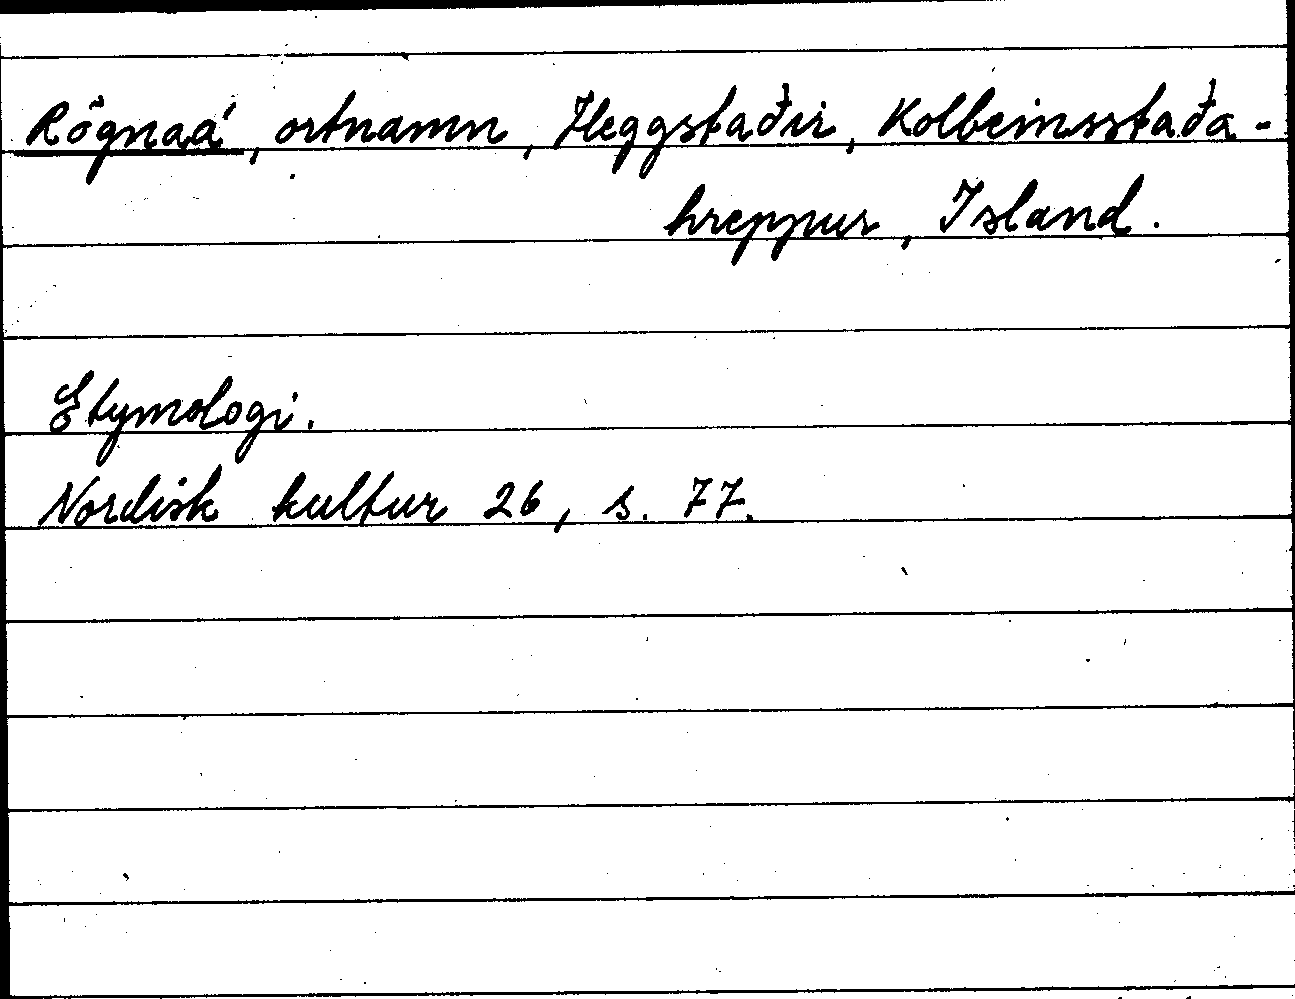 Rögnaá, ortnamn, Heggstaðir, Kolbeinsstaða-
hreppur, Island.
Etymologi.
Nordisk kultur 26, s. 77.